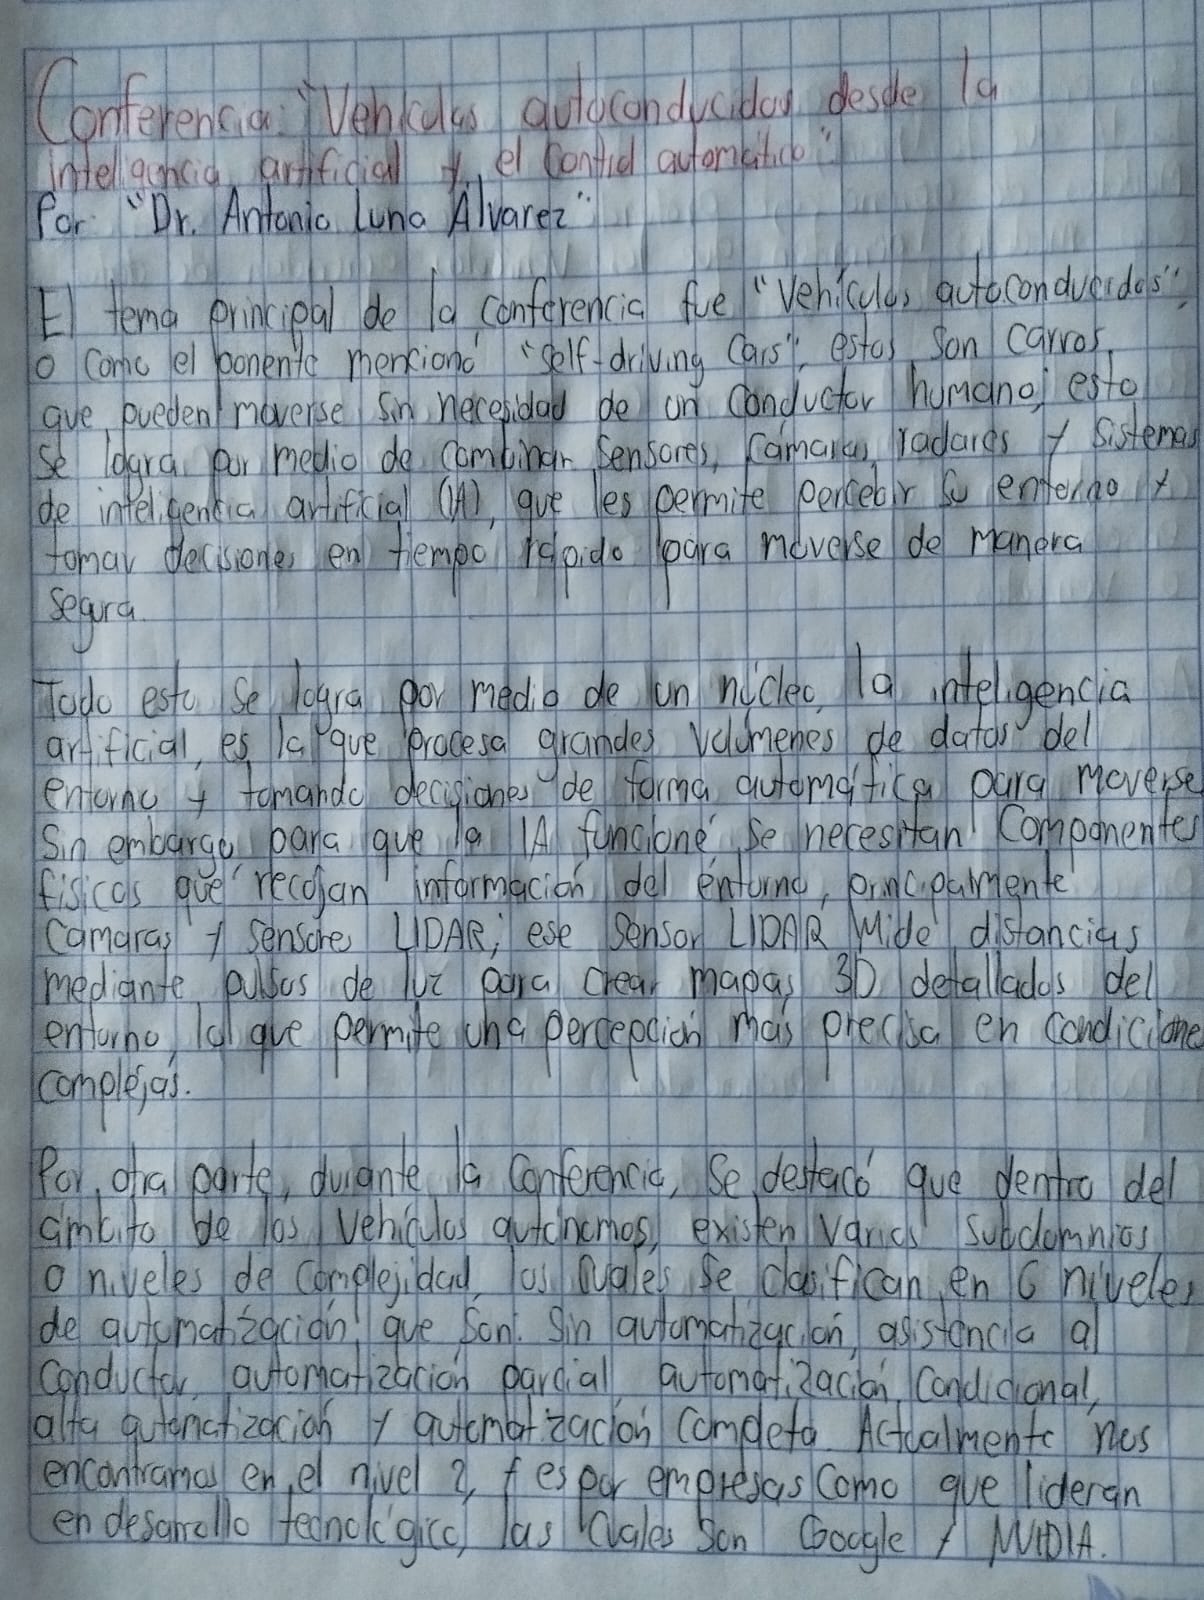 Conferencia: "Vehículos autoconducidos desde la
inteligencia artificial y el control automático"
Por: "Dr. Antonio Luna Álvarez"
El tema principal de la conferencia fue "vehículos autoconducidos",
o como el ponente mencionó "self-driving cars", estos son carros
que pueden moverse sin necesidad de un conductor humano, esto
se logra por medio de combinar sensores, cámaras, radares y sistemas
de inteligencia artificial (IA), que les permite percebir su entorno y
tomar decisiones en tiempo rápido para moverse de manera
segura.
Todo esto se logra por medio de un núcleo, la inteligencia
artificial, es la que procesa grandes volúmenes de datos del
entorno y tomando decisiones de forma automática para moverse
Sin embargo, para que la IA funcione se necesitan componentes
físicos que recojan información del entorno, principalmente
camaras y sensores LIDAR, ese sensor LIDAR mide distancias
mediante pulsos de luz para crear mapas 3D detallados del
entorno, lo que permite una percepción más precisa en condicione
complejas.
Por otra parte, durante la conferencia, se destacó que dentro del
ámbito de los vehículos autónomos, existen varios subdomnios
o niveles de complejidad, los cuales se clasifican en 6 niveles
de automatización que son: Sin automatización, asistencia al
conductor, automatización parcial, automatización condicional,
alta automatización y automatización completa. Actualmente nos
encontramos en el nivel 2, y es por empresas como que lideran
en desarrollo tecnológico, las cuales son Google y NVIDIA.